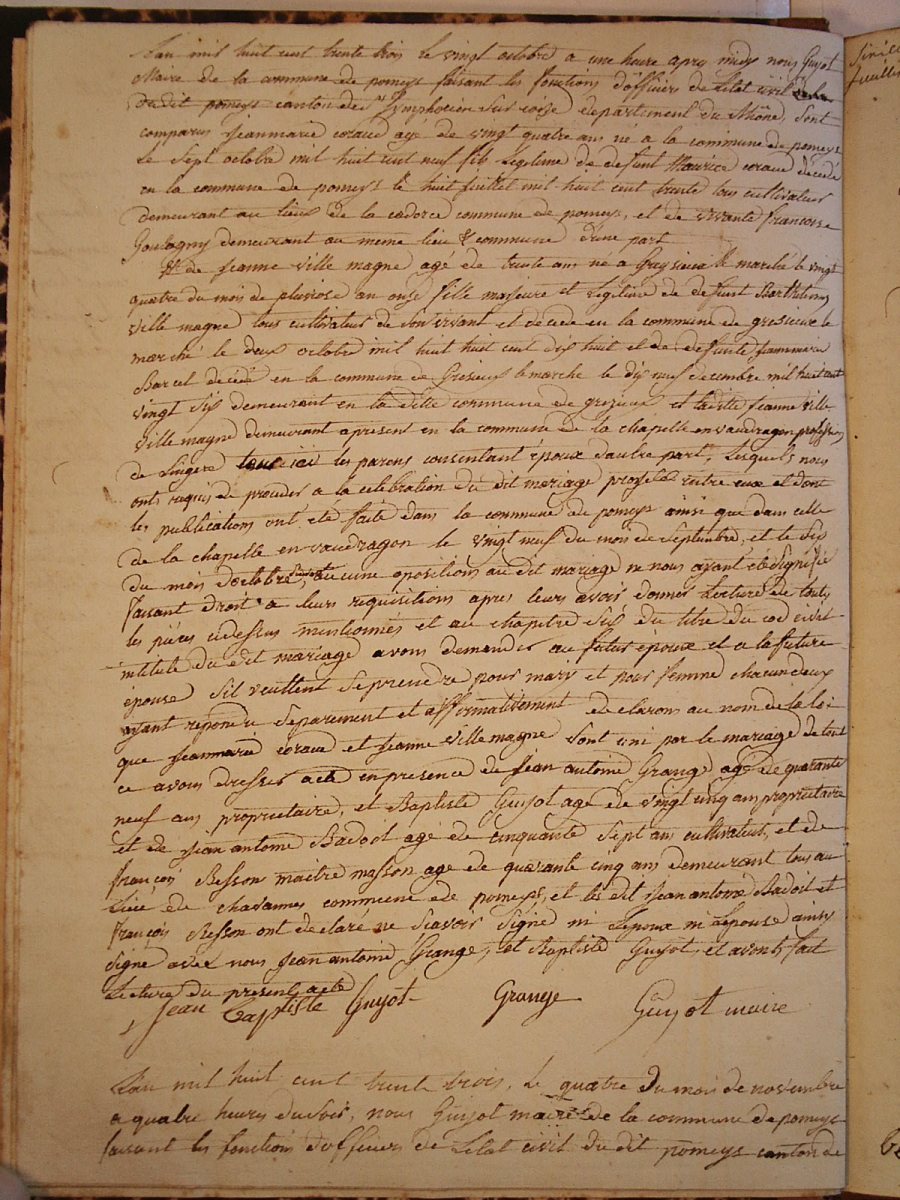 L'an mil huit cent trente trois le vingt octobre a une heure apres midy nous Guyot
Maire de la commune de pomeys faisant les fonctions d'officier de Letat civil
du dit pomeys canton de St Symphorien sur coise departement du Rhône, sont
comparus jeanmarie coraud agé de vingt quatre ans né a la commune de pomeys
Le sept octobre mil huit cent neuf fils Legitime de defunt Maurice coraud décédé
en la commune de pomeys le huit juillet mil huit cent trente tous cultivateur
demeurant au lieux de la cadorce commune de pomeys, et de vivante francoise
Goutagny demeurant au meme lieu & commune d'une part
Et de jeanne ville magne agé de trente ans né a Greysieux le marché le vingt
quatre du mois de pluviose an onze fille majeure et Legitime de defunt Barthelemy
ville magne tous cultivateur de son vivant et décédé en la commune de gresieux le
marché le deux octobre mil huit huit cent dix huit et de defunte jeanmarie
Barcel décédé en la commune de Gresieux le marché le dix neuf decembre mil huit cent
vingt six demeurant en la ditte commune de grezieux, et laditte jeanne ville
ville magne demeurant apresent en la commune de la chapelle en vaudragon profession
de Lingere les parens consentant époux d'autre part, Lesquels nous
ont requis de proceder a la celebration du dit mariage projeté entre eux et dont
les publications ont eté faite dans la commune de pomeys ainsi que dans celle
de la chapelle en vaudragon le vingt neuf du mois de Septembre, et le six
du mois d'octobre aucune oposition au dit mariage ne nous ayant été Signifié
faisant droit a leurs requisitions apres leurs avoir donner Lecture de touts
les pièces cidessus mentionnés et au chapitre six du titre du cod civil
intitulé du dit mariage avons demander au futur époux et a la future
épouse s'il veullent se prendre pour mary et pour femme chacun deux
ayant repondu separement et afformativement declarons au nom de la loi
que jeanmarie coraud et jeanne ville magne sont uni par le mariage de tout
ce avons dresser acte en presence de jean antoine Grange agé de quarante
neuf ans proprietaire, et Baptiste Guyot age de vingt cinq ans proprietaire
et de jean antoine Badoit agé de cinquante sept ans cultivateur, et de
françois Besson maitre masson age de quarante cinq ans demeurant tous au
Lieu de chavannes commune de pomeys, et les dit jean antoine Badoit et
françois Besson ont declaré ne Scavoir Signé ni Lepoux ni Lepouse ainsy
Signe avec nous jean antoine Grange, et Baptiste Guyot, et avons fait
Lecture du present acte
jean Baptiste Guyot Grange Guyot maire
L'an mil huit cent trente trois, le quatre du mois de novembre
a quatre heures du soir, nous Guyot maire de la commune de pomeys
faisant les fonctions d'officiers de Letat civil du dit pomeys canton de